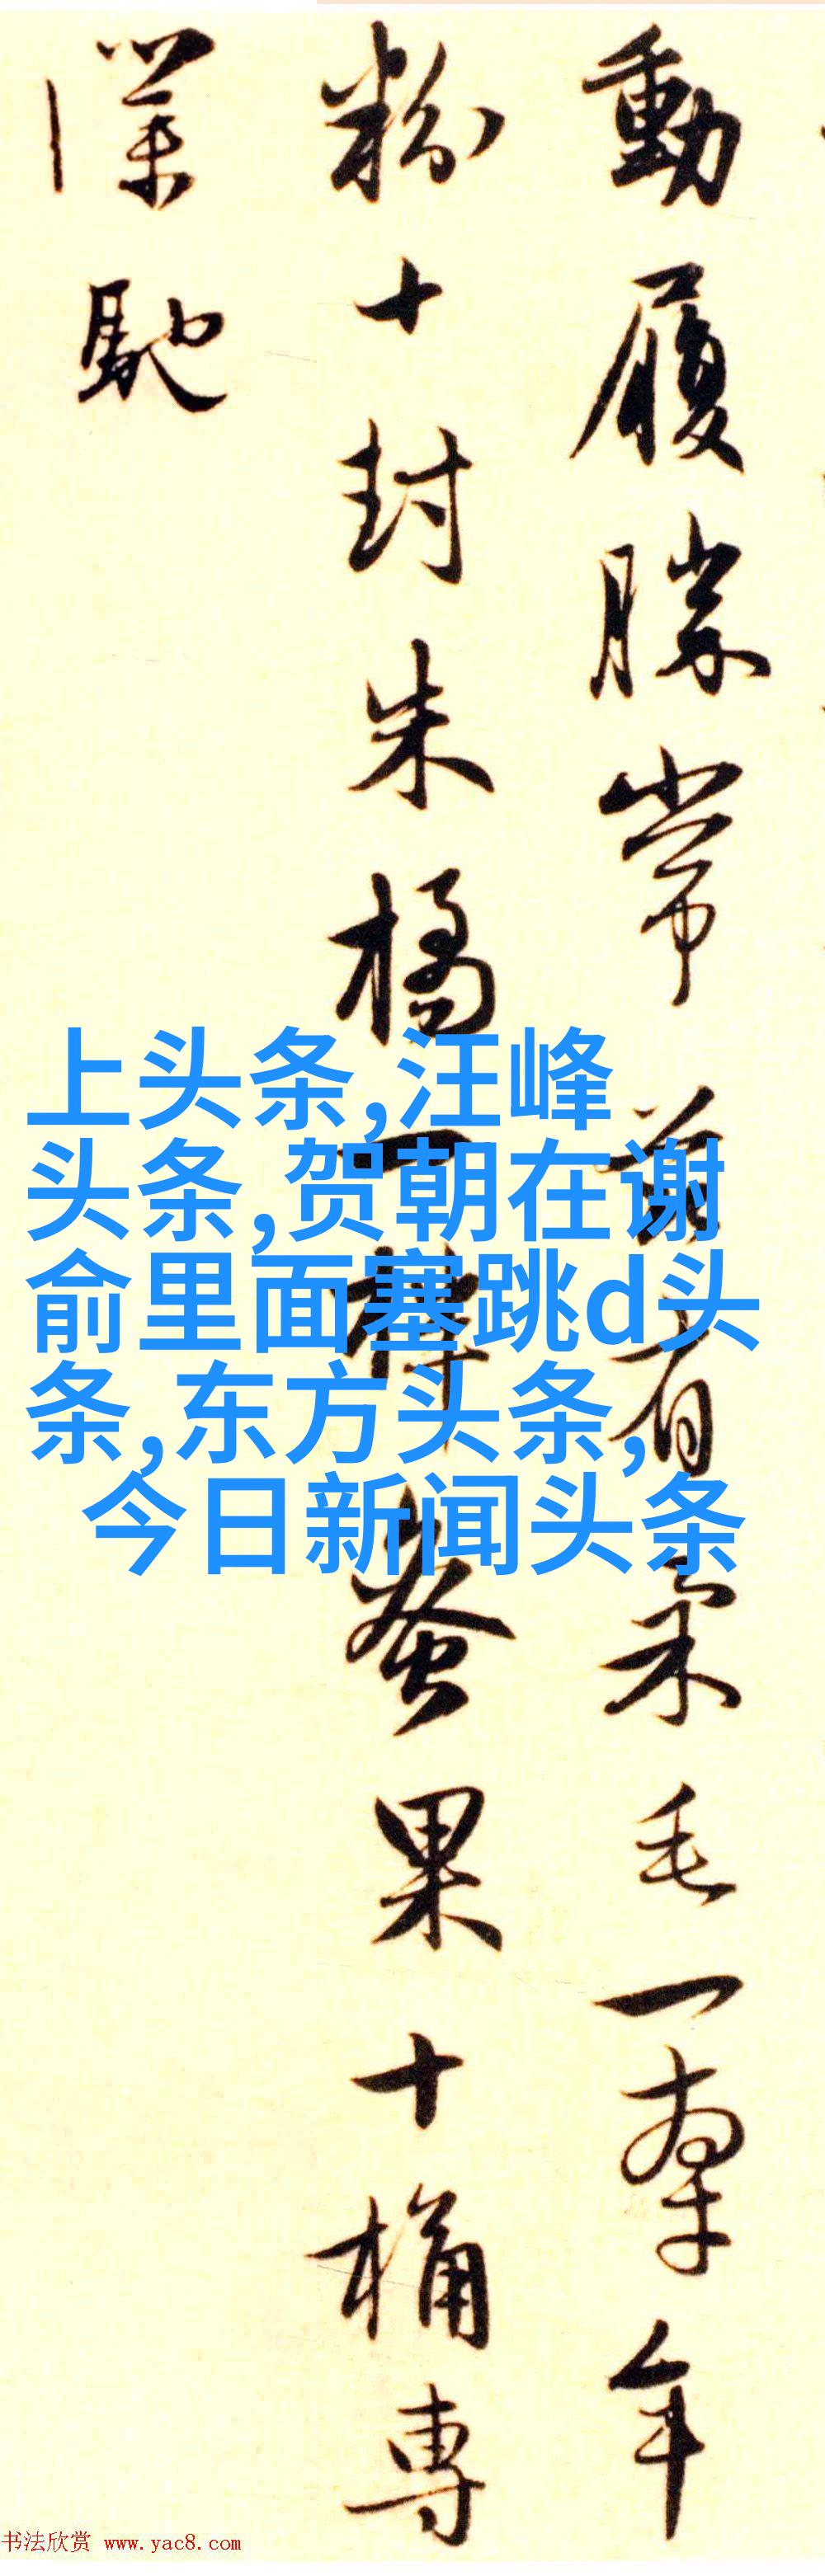 動履勝常有柔毛一牽年
粉十封朱橘一蚕果十桶専
僕馳
上头条,汪峰
头条,贺朝在谢
俞里面塞跳d头
条,东方头条,
今日新闻头条
书法欣赏 www.yac8.com